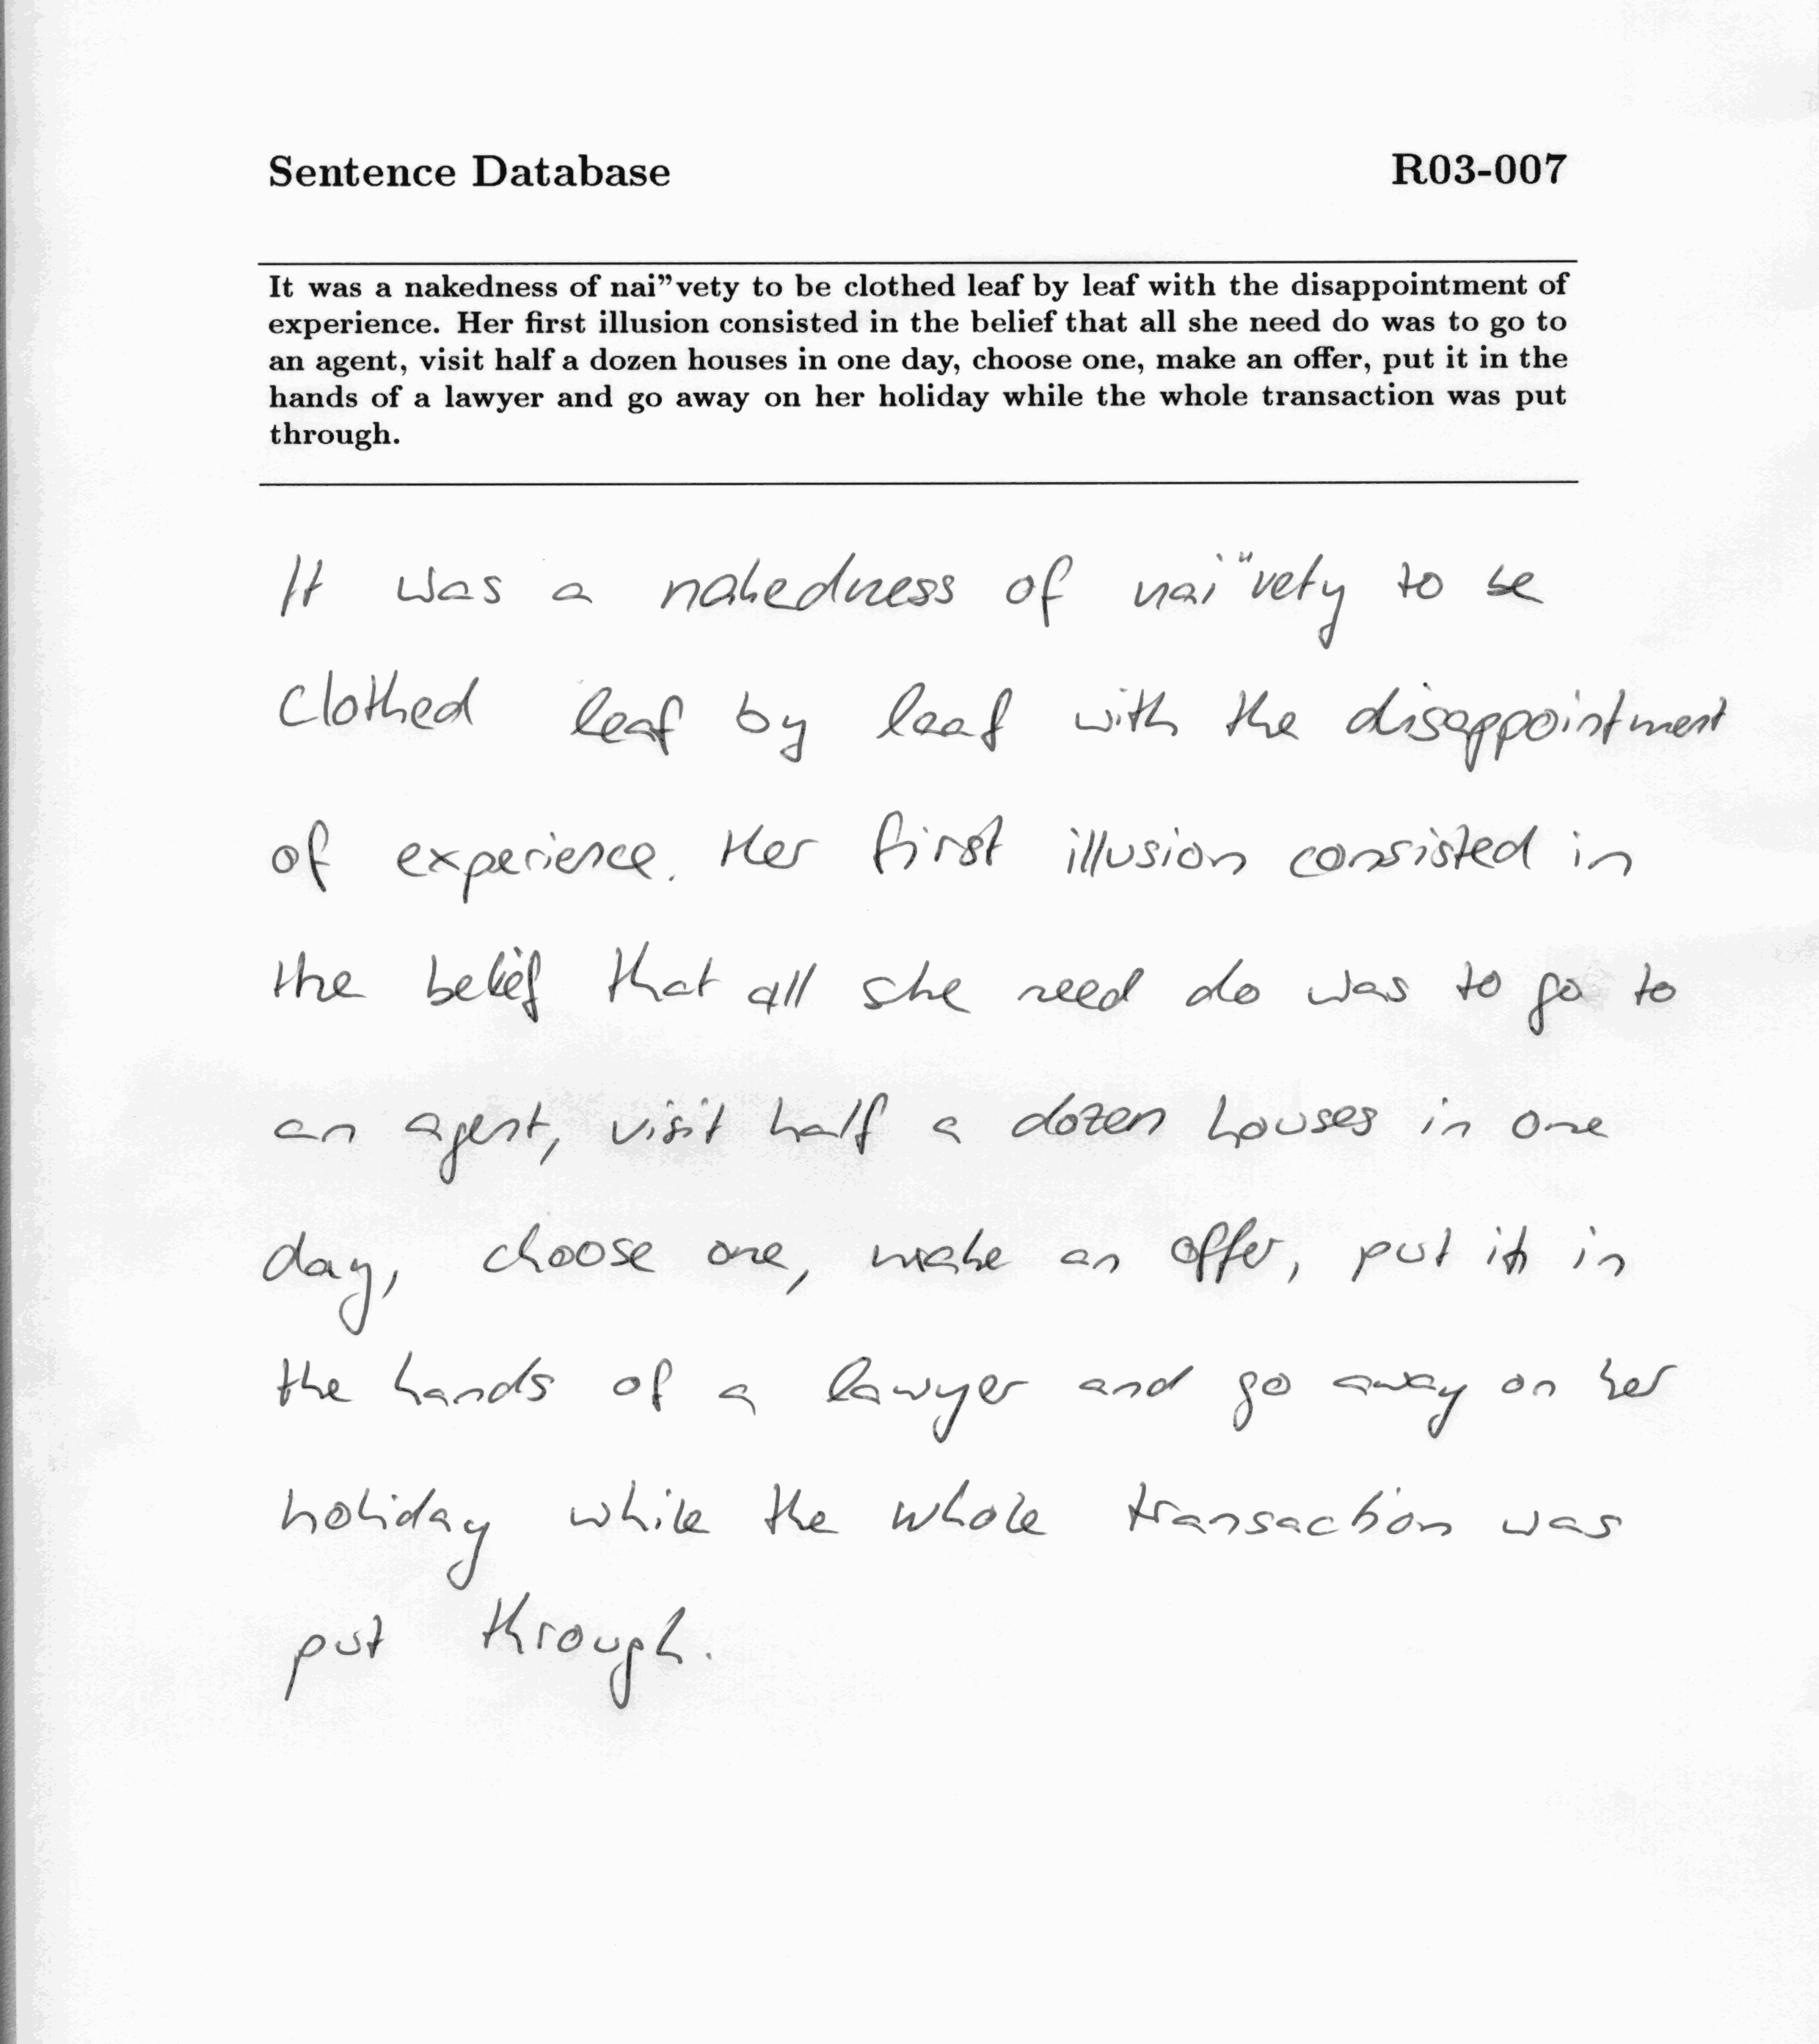 Sentence Database R03-007
It was a nakedness of nai”vety to be clothed leaf by leaf with the disappointment of
experience. Her first illusion consisted in the belief that all she need do was to go to
an agent, visit half a dozen houses in one day, choose one, make an offer, put it in the
hands of a lawyer and go away on her holiday while the whole transaction was put
through.
It was a nakedness of nai"vety to be
clothed leaf by leaf with the disappointment
of experience. Her first illusion consisted in
the belief that all she need do was to go to
an agent, visit half a dozen houses in one
day, choose one, make an offer, put it in
the hands of a lawyer and go away on her
holiday while the whole transaction was
put through.